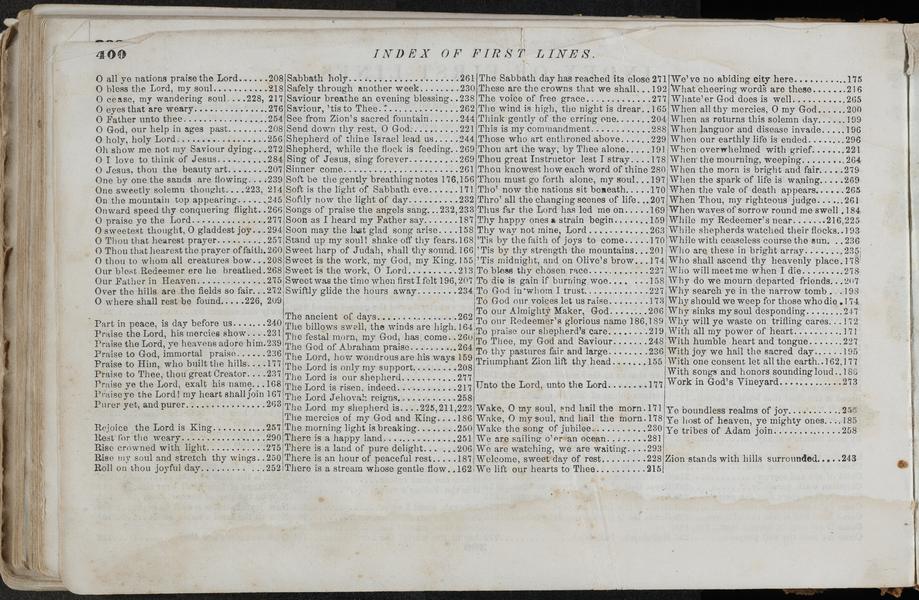 400
INDEX OF FIRST LINES.
O all ye nations praise the Lord......208
O bless the Lord, my soul..........218
O cease, my wandering soul...228, 217
O eyes that are weary.............276
O Father unto thee................254
O God, our help in ages past.......208
O holy, holy Lord.................256
Oh show me not my Saviour dying...272
O I love to think of Jesus..........284
O Jesus, thou the beauty art........207
One by one the sands are flowing...239
One sweetly solemn thought....223, 214
On the mountain top appearing......245
Onward speed thy conquering flight..266
O praise ye the Lord...............277
O sweetest thought, O gladdest joy...294
O Thou that hearest prayer.........257
O Thou that hearest the prayer of faith.260
O thou to whom all creatures bow...208
Our blest Redeemer ere he breathed.268
Our Father in Heaven..............275
Over the hills are the fields so fair...272
O where shall rest be found.....226, 209
Part in peace, is day before us......240
Praise the Lord, his mercies show....231
Praise the Lord, ye heavens adore him.239
Praise to God, immortal praise......236
Praise to Him, who built the hills....177
Praise to Thee, thou great Creator....237
Praise ye the Lord, exalt his name...168
Praise ye the Lord! my heart shall join 167
Purer yet, and purer...............263
Rejoice the Lord is King...........257
Rest for the weary................290
Rise crowned with light...........275
Rise my soul and stretch thy wings..250
Roll on thou joyful day............252
Sabbath holy....................261
Safely through another week........230
Saviour breathe an evening blessing..238
Saviour, 'tis to Thee..............262
See from Zion's sacred fountain.....244
Send down thy rest, O God.........221
Shepherd of thine Israel lead us.....244
Shepherd, while the flock is feeding..269
Sing of Jesus, sing forever..........269
Sinner come.....................261
Soft be the gently breathing notes 176,156
Soft is the light of Sabbath eve......171
Softly now the light of day..........232
Songs of praise the angels sang...232,233
Soon as I heard my Father say......187
Soon may the last glad song arise....158
Stand up my soul! shake off thy fears.168
Sweet harp of Judah, shall thy sound.166
Sweet is the work, my God, my King.155
Sweet is the work, O Lord..........213
Sweet was the time when first I felt 196, 207
Swiftly glide the hours away........234
The ancient of days...............262
The billows swell, the winds are high.164
The festal morn, my God, has come..260
The God of Abraham praise.........264
The Lord, how wondrous are his ways 159
The Lord is only my support........208
The Lord is our shepherd...........277
The Lord is risen, indeed...........217
The Lord Jehovah reigns...........258
The Lord my shepherd is.....225,211,223
The mercies of my God and King....186
The morning light is breaking.......250
There is a happy land.............251
There is a land of pure delight.......206
There is an hour of peaceful rest.....187
There is a stream whose gentle flow..162
The Sabbath day has reached its close 271
These are the crowns that we shall...192
The voice of free grace.............277
The wind is high, the night is drear..165
Think gently of the erring one.......204
This is my commandment...........288
Those who art enthroned above......229
Thou art the way, by Thee alone.....191
Thou great Instructor lest I stray.....178
Thou knowest how each word of thine 280
Thou must go forth alone, my soul...197
Tho' now the nations sit beneath.....170
Thro' all the changing scenes of life..207
Thus far the Lord has led me on.....169
Thy happy ones a strain begin.......159
Thy way not mine, Lord...........263
'Tis by the faith of joys to come.....170
'Tis by thy strength the mountains...201
'Tis midnight, and on Olive's brow...174
To bless thy chosen race...........227
To die is gain if burning woe........158
To God in whom I trust............227
To God our voices let us raise.......173
To our Almighty Maker, God.......206
To our Redeemer's glorious name 186,189
To praise our shepherd's care.......219
To Thee, my God and Saviour......248
To thy pastures fair and large........236
Triumphant Zion lift thy head.......155
Unto the Lord, unto the Lord........177
Wake, O my soul, and hail the morn.171
Wake, O my soul, and hail the morn.178
Wake the song of jubilee...........230
We are sailing o'er an ocean........281
We are watching, we are waiting....293
Welcome, sweet day of rest.........228
We lift our hearts to Thee..........215
We've no abiding city here..........175
What cheering words are these......216
Whate'er God does is well..........265
When all thy mercies, O my God.....200
When as returns this solemn day.....199
When languor and disease invade....196
When our earthly life is ended.......296
When overwhelmed with grief.......221
When the mourning, weeping........264
When the morn is bright and fair.....279
When the spark of life is waning.....269
When the vale of death appears......265
When Thou, my righteous judge.....261
When waves of sorrow round me swell.184
While my Redeemer's near......216,225
While shepherds watched their flocks..193
While with ceaseless course the sun...236
Who are these in bright array........235
Who shall ascend thy heavenly place.178
Who will meet me when I die........278
Why do we mourn departed friends..207
Why search ye in the narrow tomb...193
Why should we weep for those who die.174
Why sinks my soul desponding......247
Why will ye waste on trifling cares...172
With all my power of heart..........171
With humble heart and tongue.......227
With joy we hail the sacred day......195
With one consent let all the earth..162,177
With songs and honors sounding loud..186
Work in God's Vineyard............273
Ye boundless realms of joy..........
Ye host of heaven, ye mighty ones....185
Ye tribes of Adam join.............258
Zion stands with hills surrounded.....243